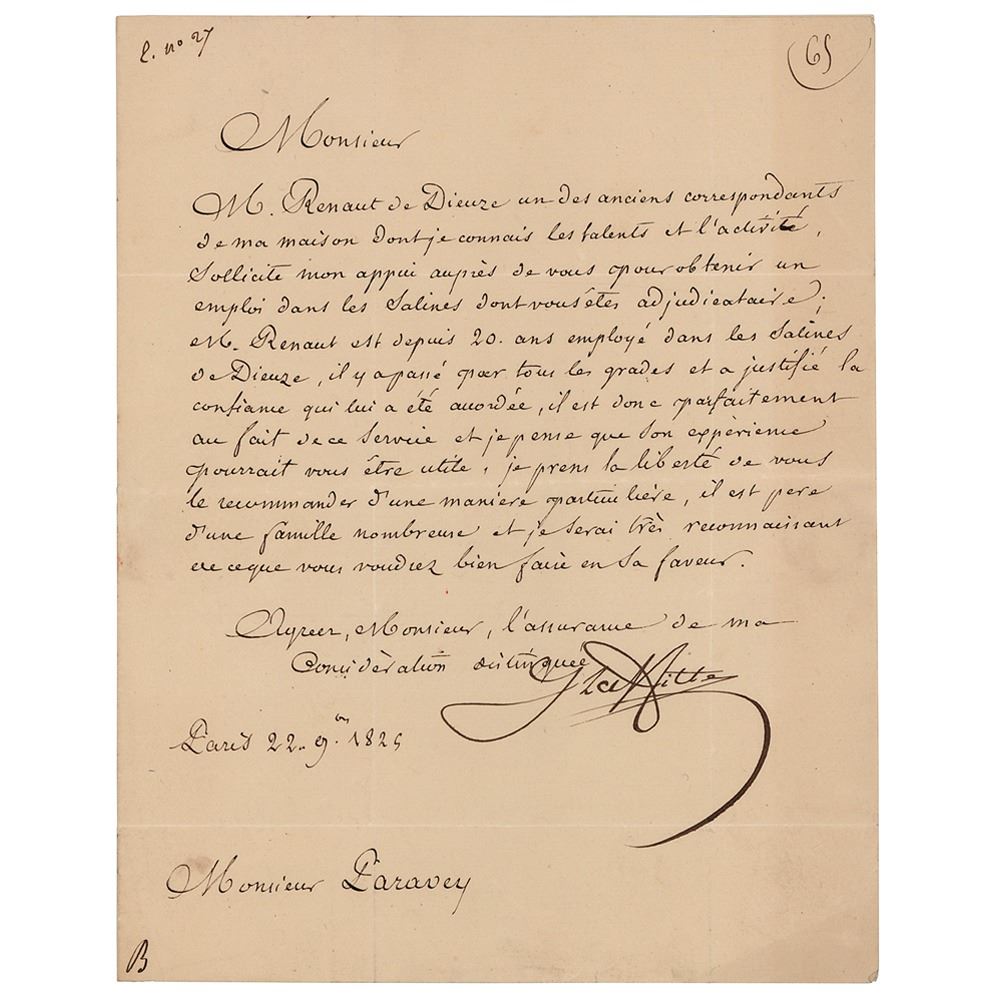 L. nº 27
65
Monsieur
M. Renaut de Dieuze un des anciens correspondants
de ma maison dont je connais les talents et l'activité,
sollicite mon appui auprès de vous pour obtenir un
emploi dans les Salines dont vous êtes adjudicataire;
M. Renaut est depuis 20. ans employé dans les Salines
de Dieuze, il y a passé par tous les grades et a justifié la
confiance qui lui a été accordée, il est donc parfaitement
au fait de ce service et je pense que son expèrience
pourrait vous être utile, je prens la liberté de vous
le recommander d'une maniere particulière, il est pere
d'une famille nombreuse et je serai très reconnaissant
de ce que vous voudrez bien faire en sa faveur.
Agréer, Monsieur, l'assurance de ma
Considèration distinguée
J Laffitte
Paris 22. 9.bre 1825
Monsieur Paravey
B